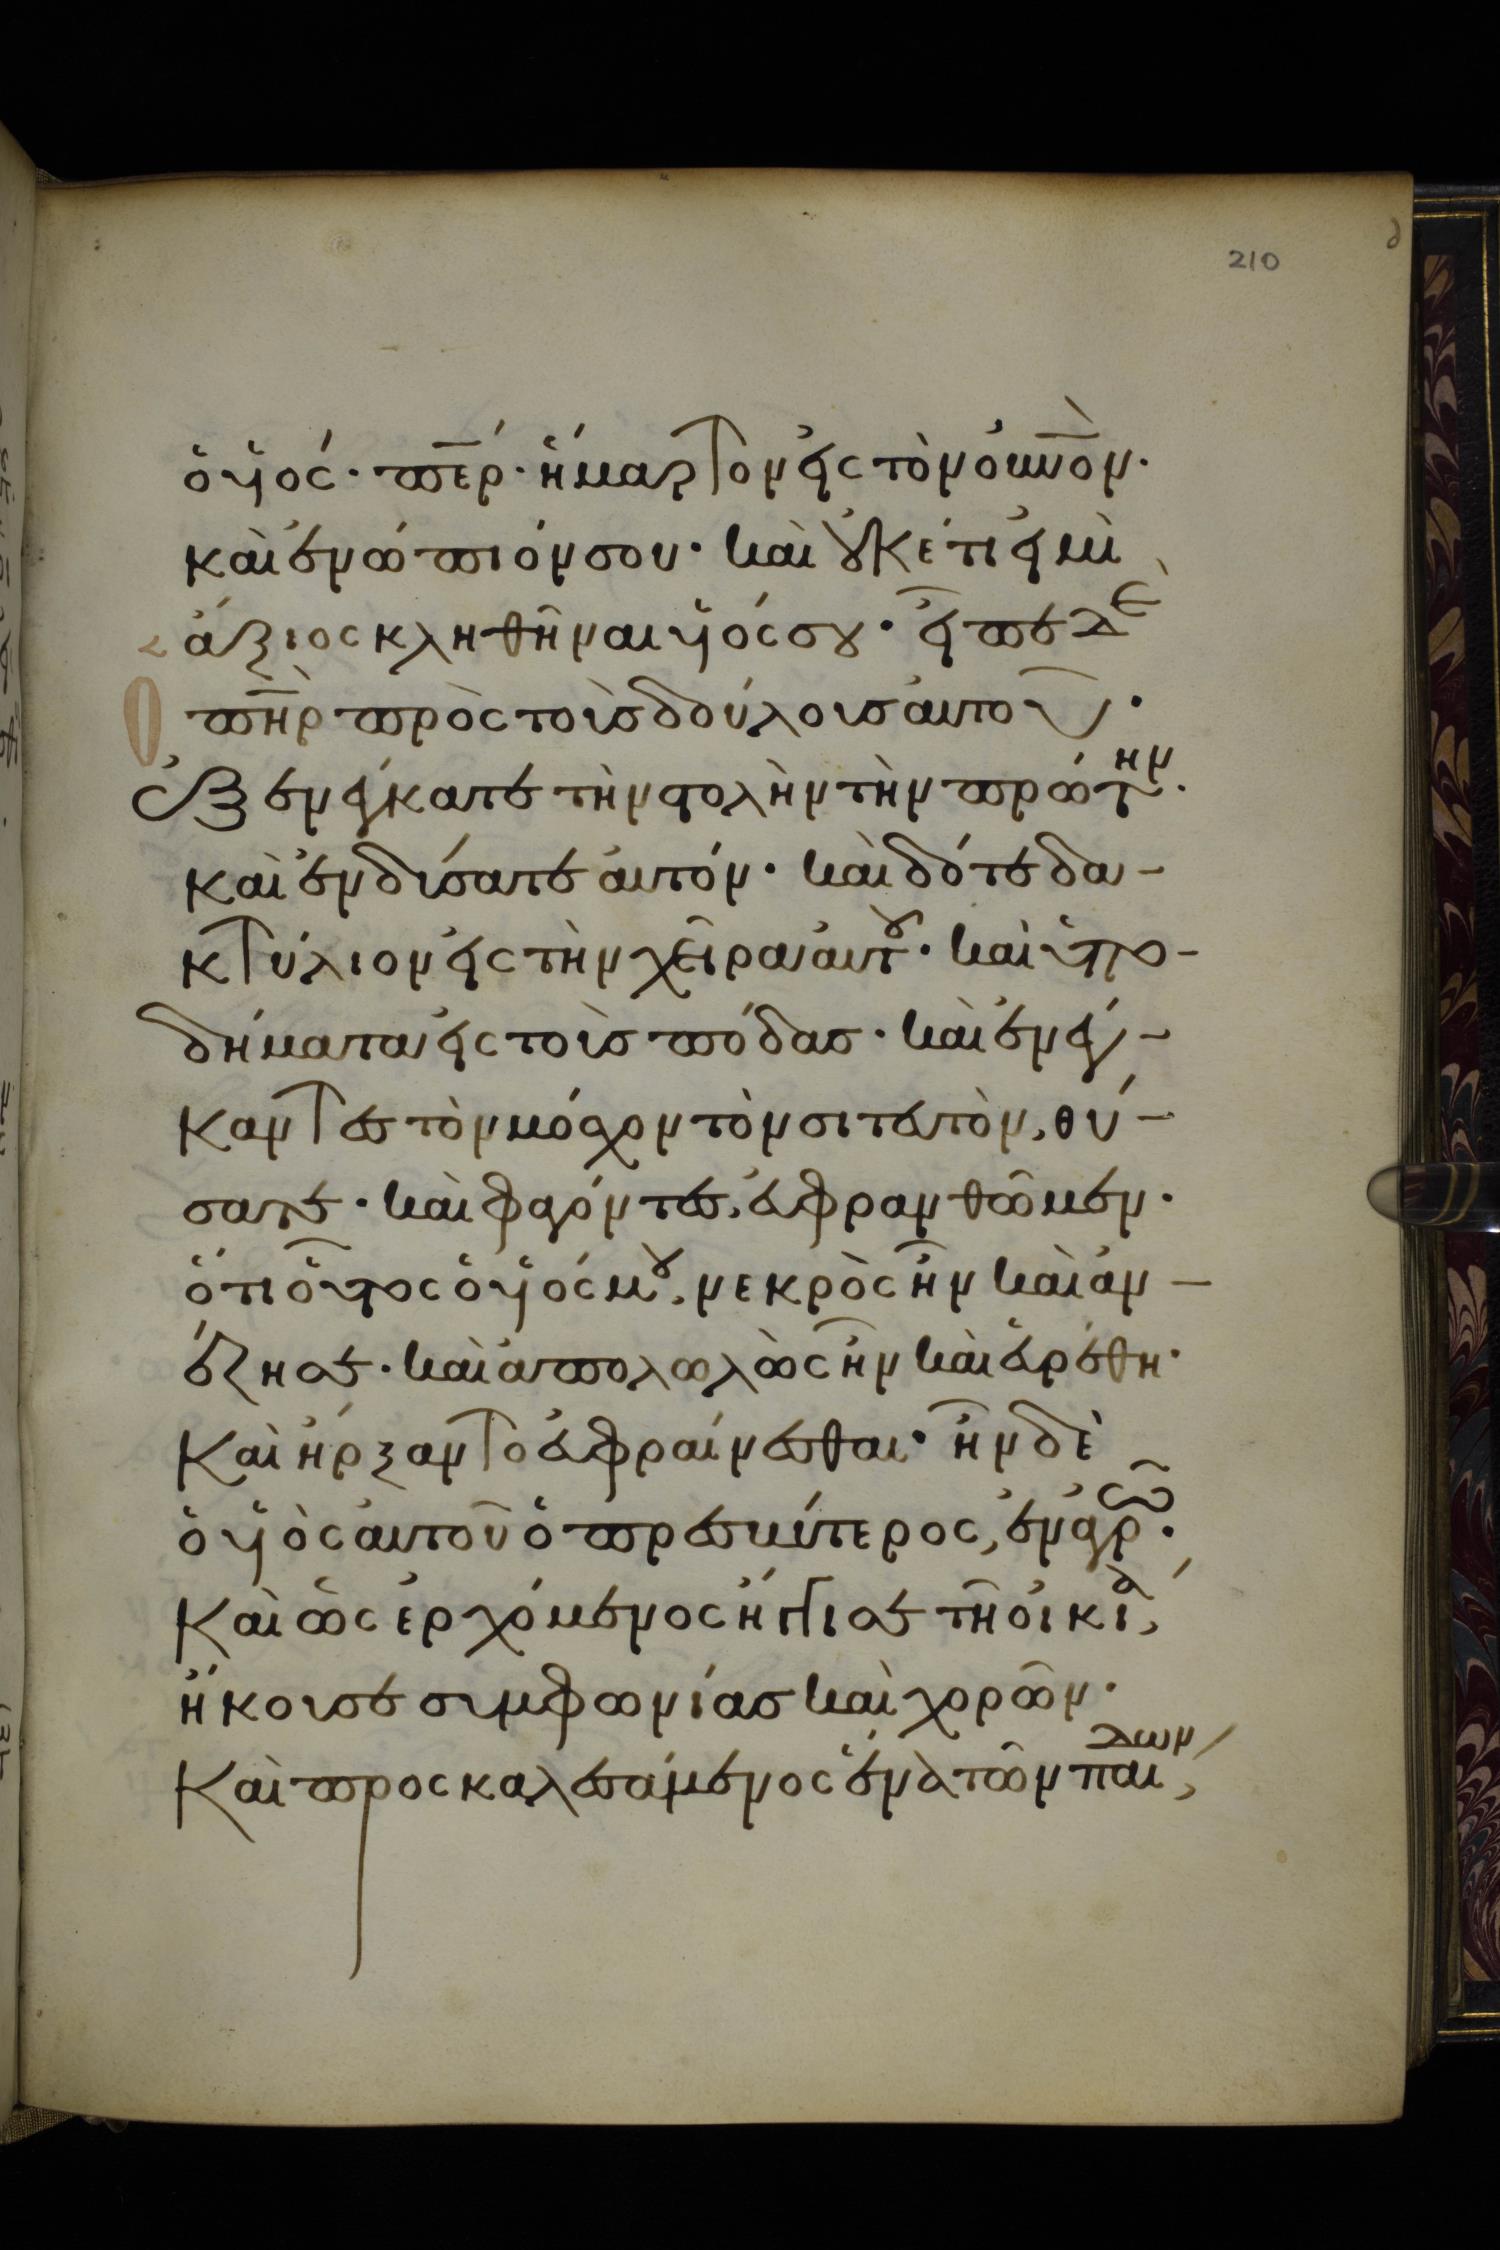 210
ὁ υἱός· περ· ἥμαρτον εἰς τὸν οὐνον·
καὶ ἐνώπιόν σου· καὶ οὐκέτι εἰμὶ
ἄξιος κληθῆναι υἱός σου· εἶπε δὲ
πηρ πρὸς τοὺς δούλους αὐτοῦ·
ἐξενέγκατε τὴν στολὴν τὴν πρώτην·
καὶ ἐνδύσατε αὐτόν· καὶ δότε δα-
κτύλιον εἰς τὴν χεῖρα αὐτοῦ· καὶ ὑπο-
δήματα εἰς τοὺς πόδας· καὶ ἐνέγ-
καντες τὸν μόσχον τὸν σιτευτὸν, θύ-
σατε· καὶ φαγόντες, εὐφρανθῶμεν·
ὅτι οὗτος ὁ υἱός μου, νεκρὸς ἦν καὶ ἀν-
έζησε· καὶ ἀπολωλὼς ἦν καὶ εὑρέθη·
Καὶ ἤρξαντο εὐφραίνεσθαι· ἦν δὲ
ὁ υἱὸς αὐτοῦ ὁ πρεσβύτερος, ἐν ἀγρῶ·
Καὶ ὡς ἐρχόμενος ἤγγισε τῆ οἰκίᾳ,
ἤκουσε συμφωνίας καὶ χορῶν·
Καὶ προσκαλεσάμενος ἕνα τῶν παίδων,